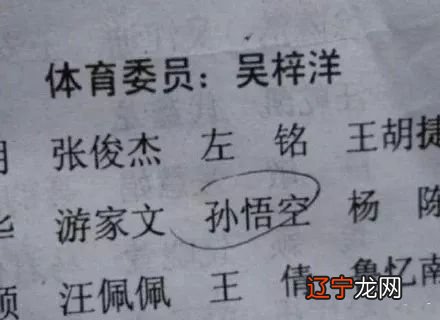 体育委员：吴梓洋
张俊杰 左 铭 王胡捷
游家文 孙悟空 杨 陈
汪佩佩 王 倩 鲁忆南
辽宁龙网